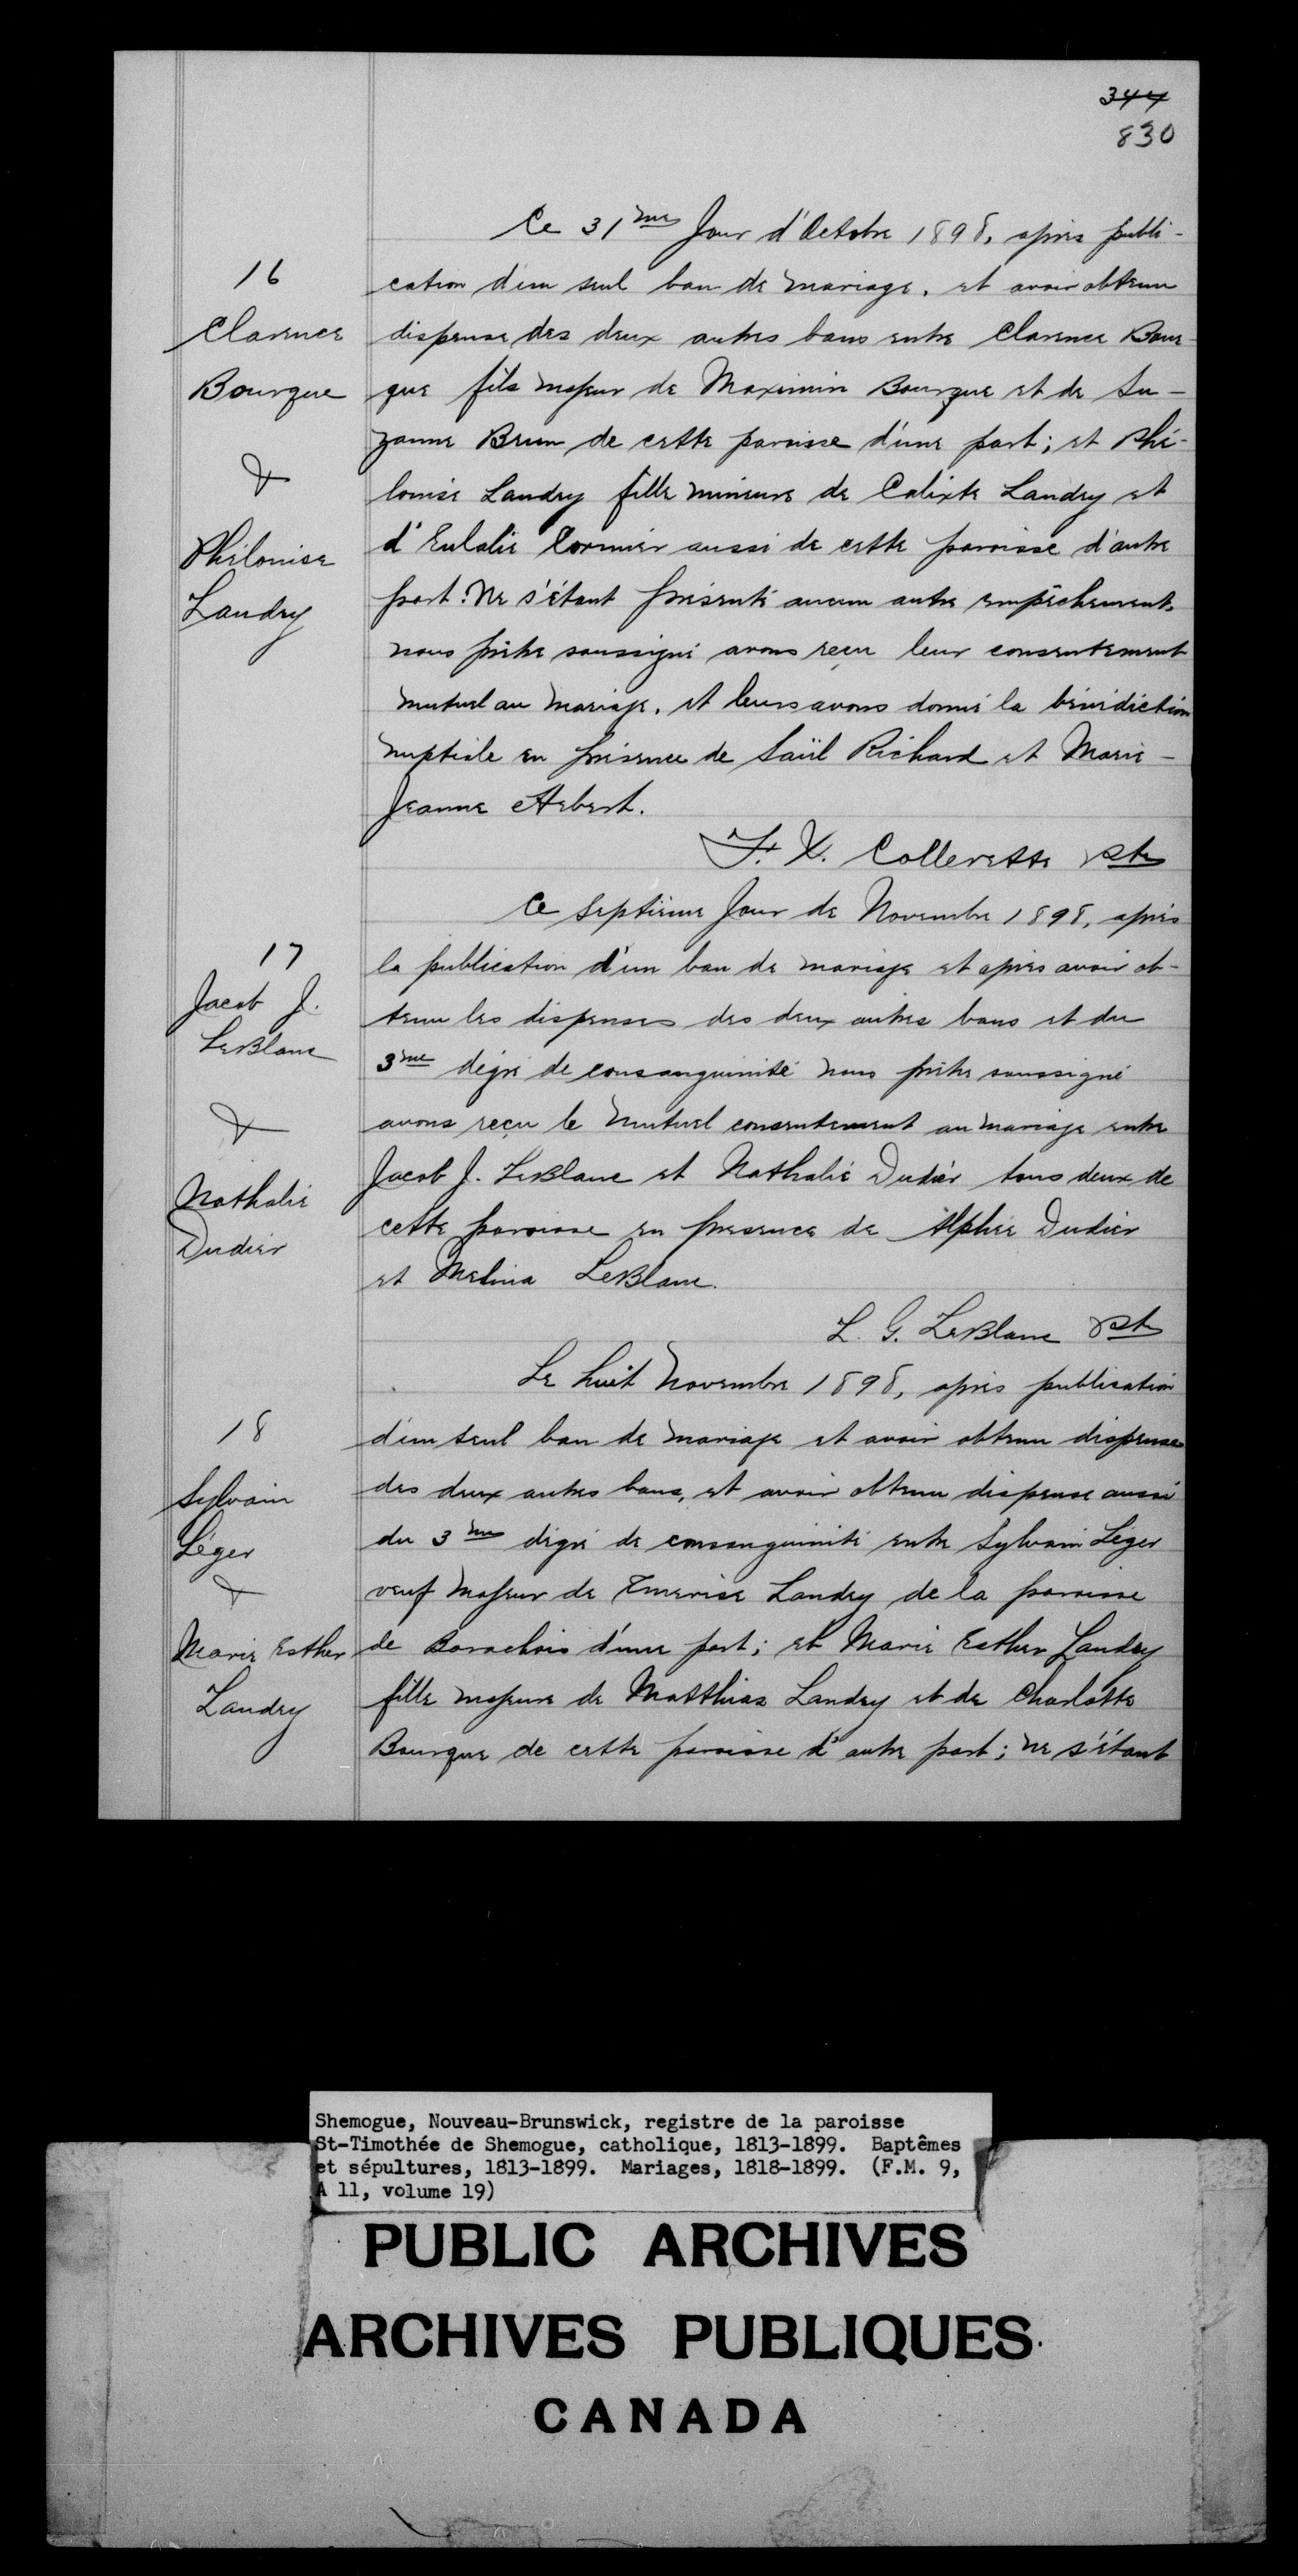 344
830
Ce 31me Jour d'Octobre 1898, après publi-
cation d'un seul ban de mariage, et avoir obtenu
dispense des deux autres bans entre Clarence Bour-
que fils majeur de Maximin Bourque et de Su-
zanne Brun de cette paroisse d'une part; et Phi-
lonise Landry fille mineure de Calixte Landry et
d'Eulalie Cormier aussi de cette paroisse d'autre
part. Ne s'étant présenté aucun autre empêchement,
nous prêtre soussigné avons reçu leur consentement
mutuel au mariage, et leurs avons donné la bénédiction
nuptiale en présence de Saül Richard et Marie-
Jeanne Hebert.
F. X. Collerette Ptr
16
Clarence
Bourque
&
Philonise
Landry
Ce septième Jour de Novembre 1898, après
la publication d'un ban de mariage et après avoir ob-
tenu les dispenses des deux autres bans et du
3me dégré de consanguinité nous prêtre soussigné
avons reçu le mutuel consentement au mariage entre
Jacob J. LeBlanc et Nathalie Dudier tous deux de
cette paroisse en presence de Alphée Dudier
et Melina LeBlanc.
L. G. LeBlanc Ptr
17
Jacob J.
LeBlanc
&
Nathalie
Dudier
Le huit Novembre 1898, après publication
d'un seul ban de mariage et avoir obtenu dispense
des deux autres bans, et avoir obtenu dispense aussi
du 3me dégré de consanguinité entre Sylvain Léger
veuf majeur de Emerise Landry de la paroisse
de Barachois d'une part; et Marie Esther Landry
fille majeure de Matthias Landry et de Charlotte
Bourque de cette paroisse d'autre part; ne s'étant
18
Sylvain
Léger
&
Marie Esther
Landry
Shemogue, Nouveau-Brunswick, registre de la paroisse
St-Timothée de Shemogue, catholique, 1813-1899. Baptêmes
et sépultures, 1813-1899. Mariages, 1818-1899. (F.M. 9,
A 11, volume 19)
PUBLIC ARCHIVES
ARCHIVES PUBLIQUES
CANADA